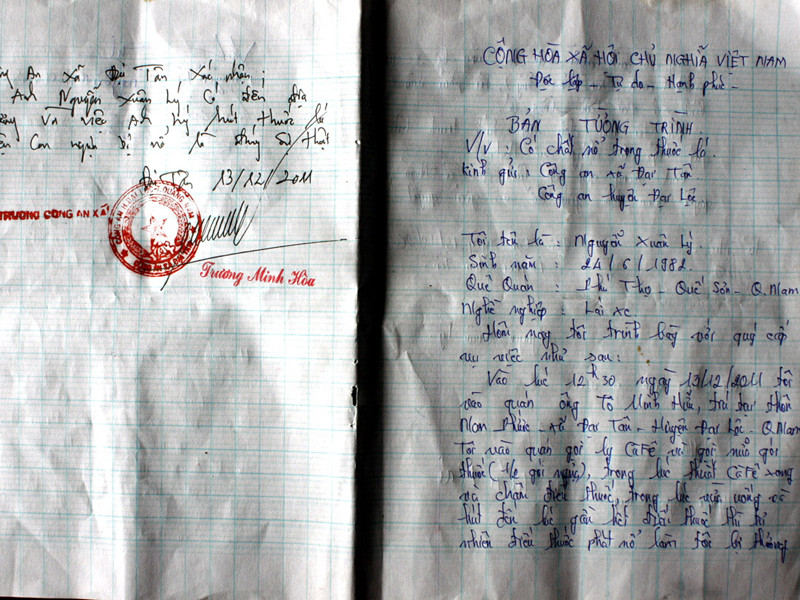 An xã Đại Tân xác nhận:
Anh Nguyễn Xuân Lý Có đến địa
và việc Anh Lý hút thuốc lá
Con ngựa bị nổ là đúng sự thật
Đại Tân 13/12/2011
TRƯỞNG CÔNG AN XÃ
Trương Minh Hòa
CỘNG HÒA XÃ HỘI CHỦ NGHĨA VIỆT NAM
Độc lập - Tự do - Hạnh phúc -
BẢN TƯỜNG TRÌNH
V/v: Có chất nổ trong thuốc lá.
Kính gửi: Công an xã Đại Tân
Công an huyện Đại Lộc
Tôi tên là: Nguyễn Xuân Lý.
Sinh năm: 24/6/1982.
Quê Quán: Phú Thọ - Quế Sơn - Q.Nam
Nghề nghiệp: Lái xe
Hôm nay tôi trình bày với quý cấp
vụ việc như sau:
Vào lúc 12h30 ngày 13/12/2011 tôi
vào quán ông Tô Minh Hữu, trú tại thôn
Nam Phước - xã Đại Tân - Huyện Đại Lộc - Q.Nam
Tôi vào quán gọi ly Cafê và gói nửa gói
thuốc (½ gói ngựa), trong lúc Cafê xong
và châm điếu thuốc, trong lúc vừa uống và
hút đến lúc gần hết điếu thuốc thì tự
nhiên điếu thuốc phát nổ làm tôi bị thương